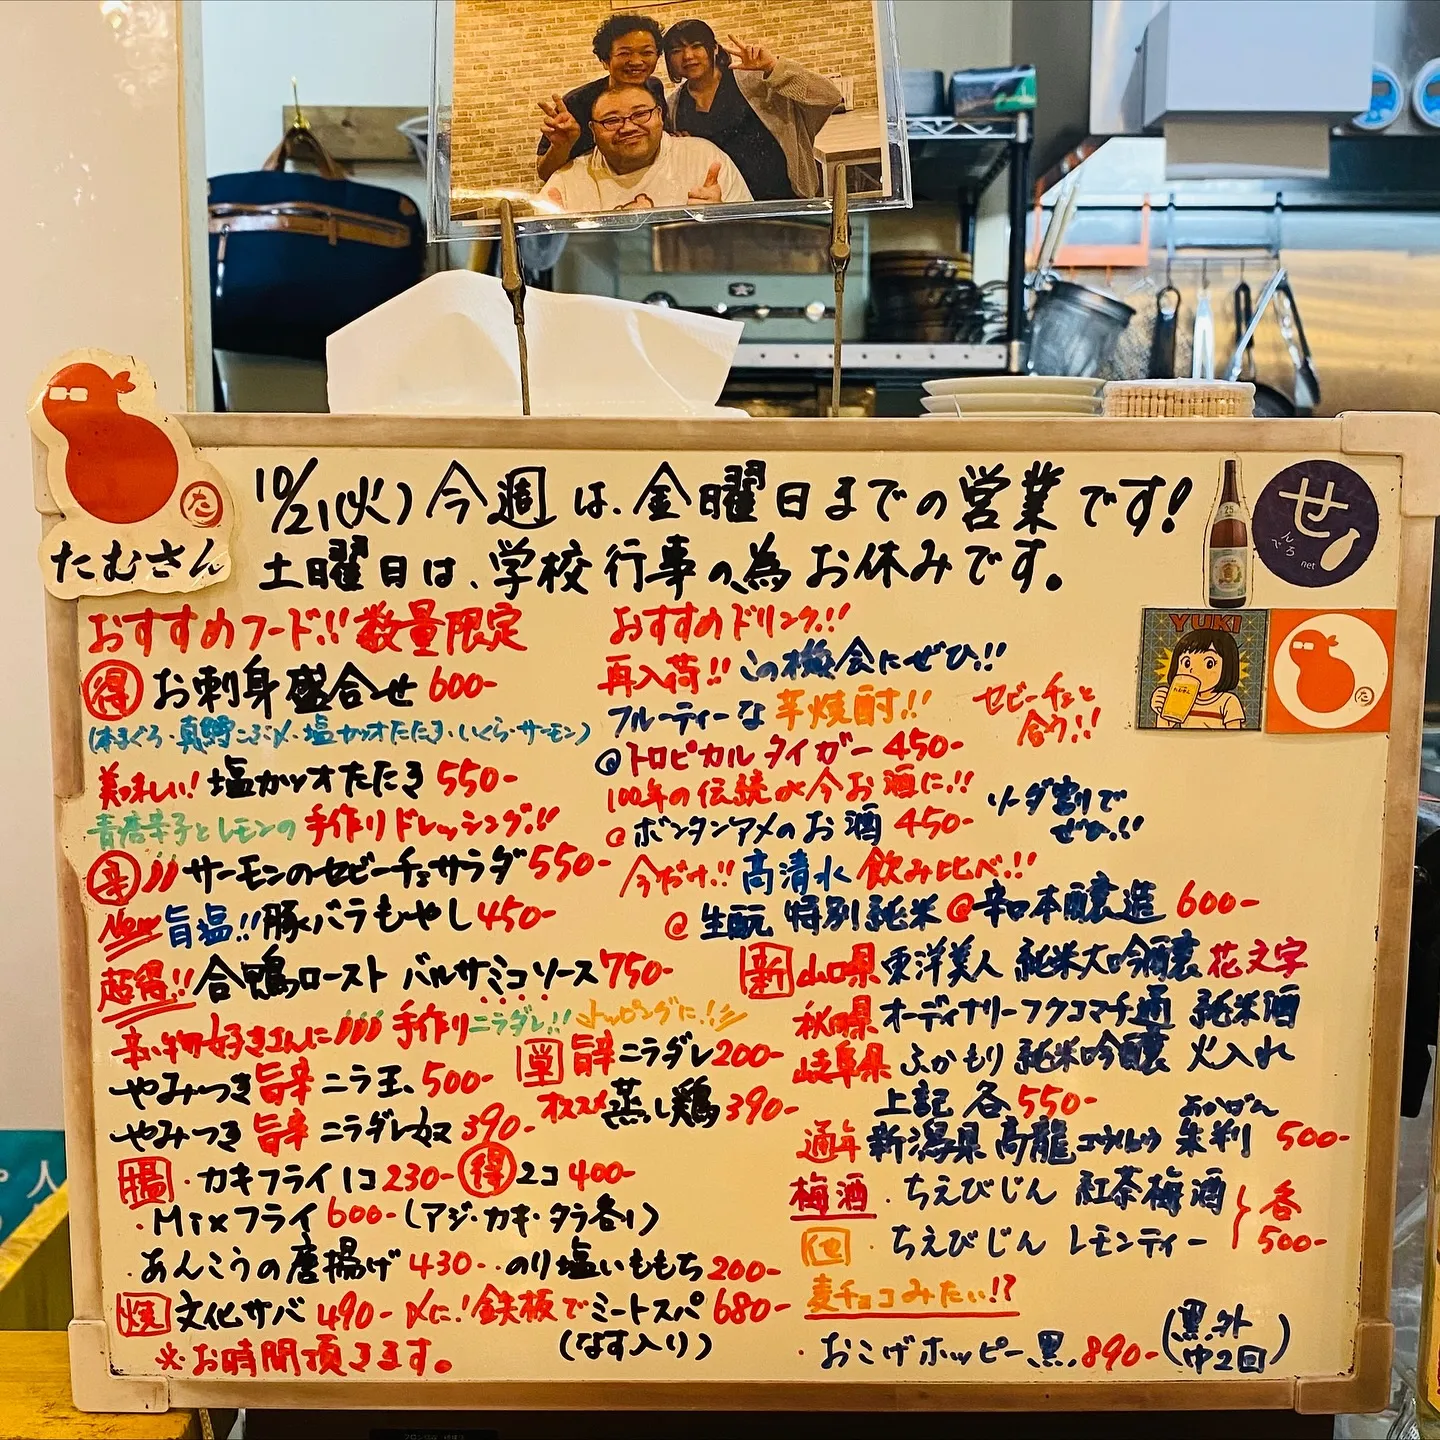 10/21(火)今週は、金曜日までの営業です!
土曜日は、学校行事の為お休みです。
た
たむさん
せ
でんろ
net
25
YUKI
た
おすすめフード!!数量限定
得 お刺身盛合せ 600-
(本まぐろ・真鯛こぶ〆・塩カツオたたき・いくら・サーモン)
美味しい!塩カツオたたき 550-
青唐辛子とレモンの手作りドレッシング!!
辛 サーモンのセビーチェサラダ 550-
New 旨塩!!豚バラもやし 450-
超得!!合鴨ロースト バルサミコソース 750-
辛い物好きさんに 手作りニラダレ!! トッピングに!!
やみつき旨辛ニラ玉 500-
単 旨辛ニラダレ 200-
やみつき旨辛ニラダレ奴 390-
オススメ 蒸し鶏 390-
揚・カキフライ1コ 230- 得 2コ 400-
・Mixフライ 600-(アジ・カキ・タラ各1)
・あんこうの唐揚げ 430-・のり塩いももち 200-
焼 文化サバ 490- 〆に!鉄板でミートスパ 680-
(なす入り)
※お時間頂きます。
おすすめドリンク!!
再入荷!!この機会にぜひ!!
フルーティーな芋焼酎!!
セビーチェと合う!!
@トロピカルタイガー 450-
100年の伝統が今お酒に!!
@ボンタンアメのお酒 450-
ソーダ割りでぜひ!!
今だけ!!高清水飲み比べ!!
@生酛特別純米@辛口本醸造 600-
新 山口県 東洋美人 純米大吟醸 花文字
秋田県 オーディナリーフクコマチ 通 純米酒
岐阜県 ふかもり 純米吟醸 火入れ
上記 各 550-
あかばん
通年 新潟県 高龍コウリュウ 朱判 500-
梅酒・ちえびじん 紅茶梅酒
他・ちえびじん レモンティー
各500-
麦チョコみたい!?
・おこげホッピー黒 890-(黒、外 中2回)